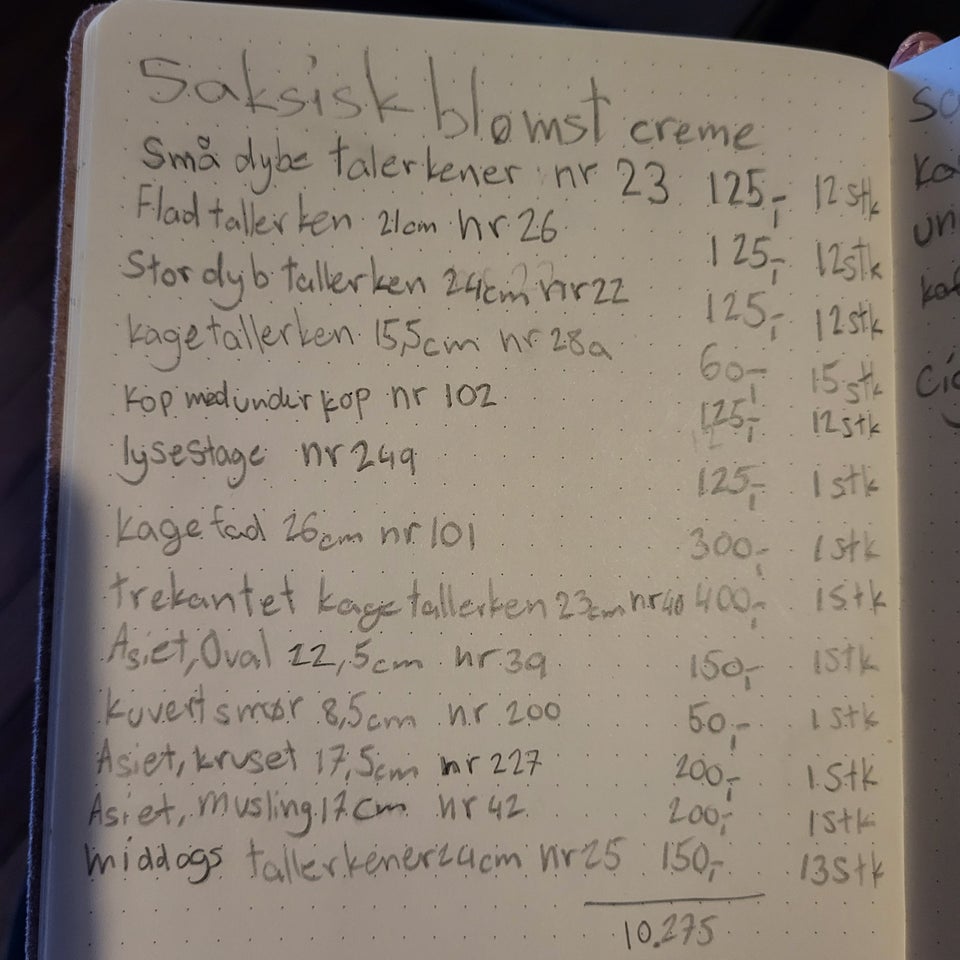 Saksisk blomst creme
Små dybe talerkener nr 23 125,- 12 stk
Flad tallerken 21cm nr 26 125,- 12stk
Stor dyb tallerken 24cm nr 22 125,- 12stk
kagetallerken 15,5cm nr 28a 60,- 15 stk
Kop med underkop nr 102 125,- 12stk
lysestage nr 249 125,- 1 stk
kagefad 26cm nr 101 300,- 1 stk
trekantet kagetallerken 23cm nr 40 400,- 1 stk
Asiet, Oval 22,5cm nr 39 150,- 1stk
kuvert smør 8,5cm nr 200 50,- 1 stk
Asiet, kruset 17,5cm nr 227 200,- 1 stk
Asiet, musling 17cm nr 42 200,- 1stk
middags tallerkener 24cm nr 25 150,- 13 stk
10.275